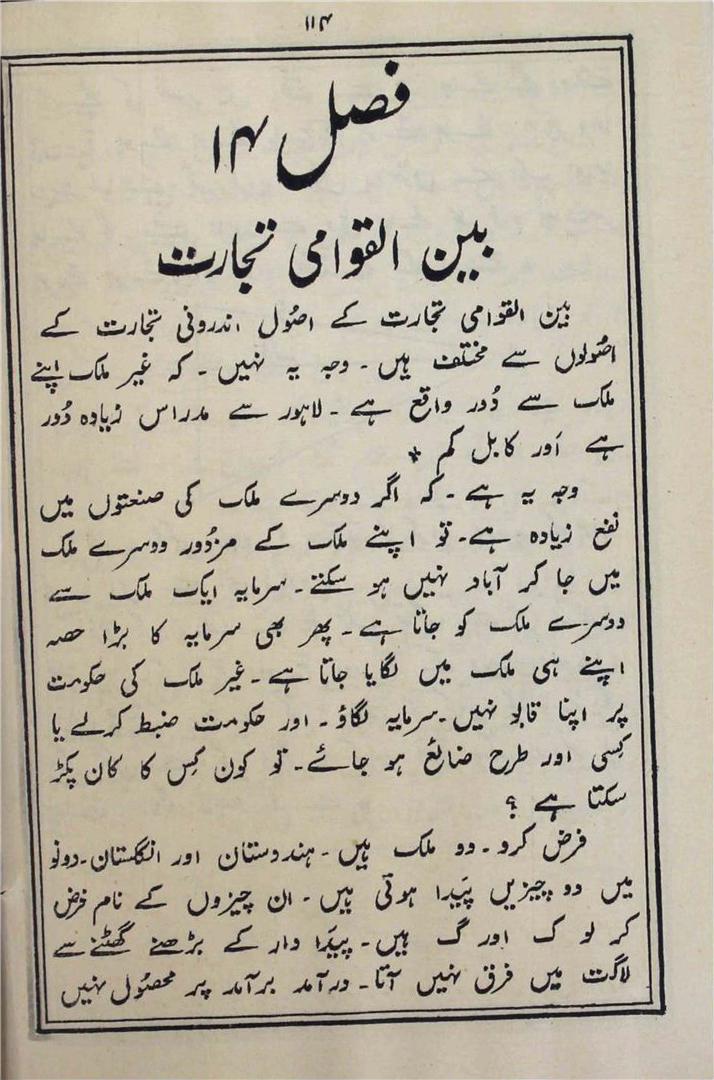 ۱۱۴
فصل ۱۴
بین القوامی تجارت
بین القوامی تجارت کے اصُول اندرونی تجارت کے
اصُولوں سے مختلف ہیں۔ وجہ یہ نہیں۔ کہ غیر ملک اپنے
ملک سے دُور واقع ہے۔ لاہور سے مدراس زیادہ دُور
ہے اَور کابل کم *
وجہ یہ ہے۔ کہ اگر دوسرے ملک کی صنعتوں میں
نفع زیادہ ہے۔ تو اپنے ملک کے مزدُور دوسرے ملک
میں جا کر آباد نہیں ہو سکتے۔ سرمایہ ایک ملک سے
دوسرے ملک کو جاتا ہے۔ پھر بھی سرمایہ کا بڑا حصہ
اپنے ہی ملک میں لگایا جاتا ہے۔ غیر ملک کی حکومت
پر اپنا قابو نہیں۔ سرمایہ لگاؤ۔ اور حکومت ضبط کرلے یا
کِسی اور طرح ضائع ہو جائے۔ تو کون کِس کا کان پکڑ
سکتا ہے ؟
فرض کرو۔ دو ملک ہیں۔ ہندوستان اور انگلستان۔ دونو
میں دو چیزیں پَیدا ہوتی ہیں۔ ان چیزوں کے نام فرض
کر لو ک اور گ ہیں۔ پیَدا وار کے بڑھنے گھٹنے سے
لاگت میں فرق نہیں آتا۔ درآمد برآمد پر محصُول نہیں